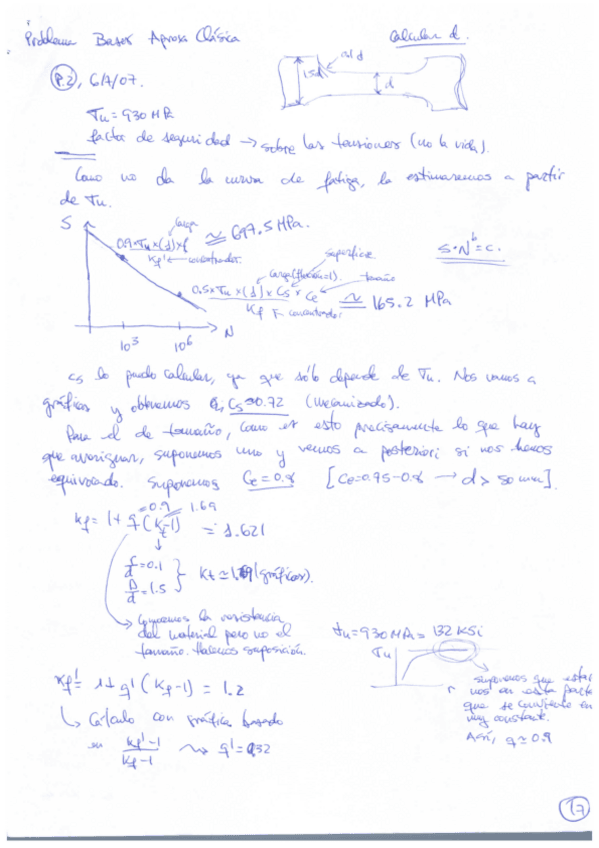 Problema Bases Aprox Clásica
Calcular d.
P.2, 6/7/07.
0.1 d
1.5d
d
Tu = 930 MPa
factor de seguridad → sobre las tensiones (no la vida).
Como no da la curva de fatiga, la estimaremos a partir
de Tu.
S
carga
0.9 × Tu × (1) × f
kf' ← concentrador
≃ 697.5 MPa.
superficie
S·N^b = c.
carga (flexión=1).
tamaño
0.5 × Tu × (1) × Cs × Ce
kf ← concentrador
≃ 165.2 MPa
N
10³
10⁶
Cs lo puedo calcular, ya que sólo depende de Tu. Nos vamos a
gráficas y obtenemos Cs = 0.72 (mecanizado).
Para el de tamaño, como es esto precisamente lo que hay
que averiguar, suponemos uno y vemos a posteriori si nos hemos
equivocado. Suponemos Ce = 0.8 [Ce = 0.75-0.8 → d > 50 mm].
= 0.9 1.69
kf = 1 + q (kt-1) = 1.621
r/d = 0.1
D/d = 1.5
kt ≃ 1.69 (gráficas).
Conocemos la resistencia
del material pero no el
tamaño. Hacemos suposición.
Tu = 930 MPa = 132 KSi
Tu
r
suponemos que estamos
en esta parte
que se convierte en
muy constante.
Así, q ≃ 0.9
kf' = 1 + q' (kf-1) = 1.2
↳ Cálculo con gráfica basado
en kf'-1 / kf-1 ⇝ q' = 0.32
17